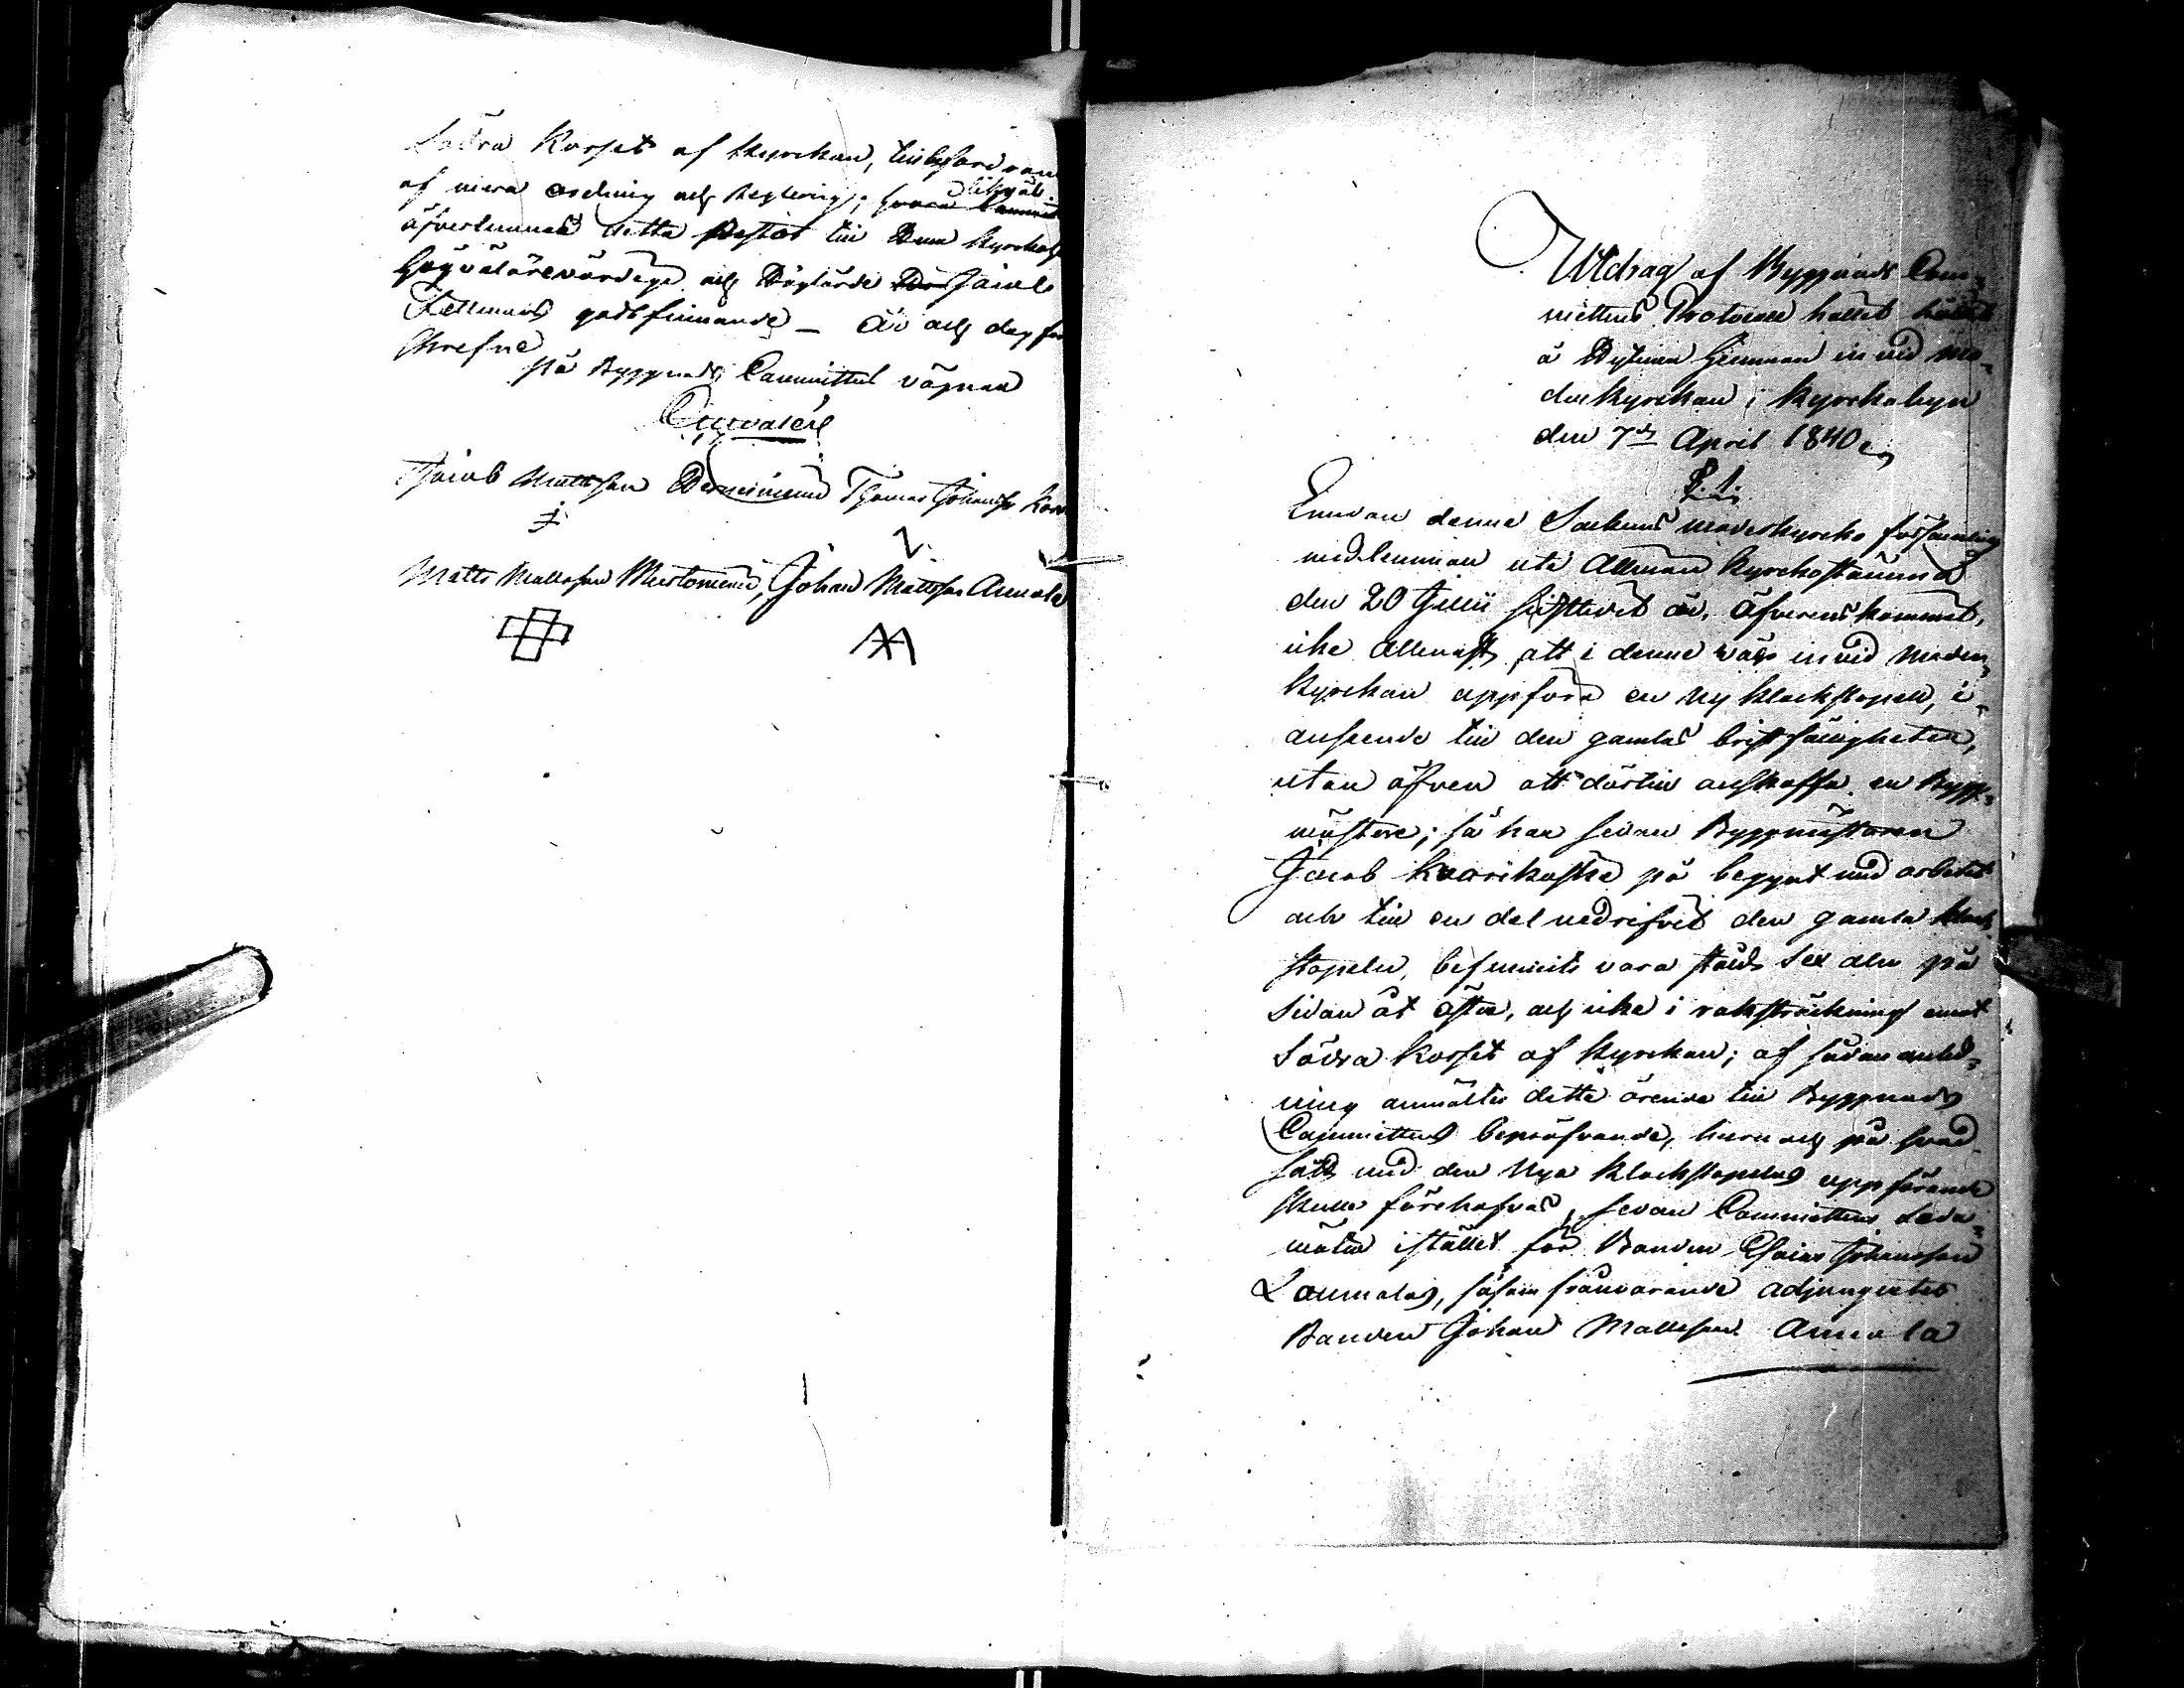 Södra Korset af Kyrckan, till befordran
af mera ordning och Reglering;
likväl
öfverlemnas detta till Kyrcko
Högvälärevördige och Höglärde Jacob
Fellmans godtfinnande – År och dag för
skrefne
på Byggnads Committens vägnar
Jacob Mattsson Thomas Johansson
Matts Mattsson Johan Mattsson Annala
Utdrag af Byggnads Com-
mittens Protocoll hållet hållet
å hemman in vid Mo-
derkyrckan i Kyrckobyn
den 7de April 1840
§. 1.
Emedan denne Sockens moderkyrcko församling
medlemmar uti Allmän Kyrckostämma
den 20 Junii sistledit år, Öfverenskommit,
icke allenast att i denne vår invid Moder-
Kyrckan uppföra en Ny Klockstapell, i
anseende till den gamlas bristfälligheter,
utan äfven att dertill anskaffa en Bygg-
mästare; så har sedan Byggmästaren
Jacob Kuorikoski på begynt med arbetet
och till en del nedrifvit den gamla Klock
stapeln, befunnits vara stäld sex aln på
Sidan åt öster, och icke i raksträckning emot
Södra Korset af Kyrckan; af sådan anled-
ning anmältes detta ärende till Byggnads
Committens bepröfvande, huru och på hvad
sätt med den Nya Klockstapelns uppförande
skulle förehafvas, sedan Committens Leda-
möter istället för Bonden Esaias Johansson
Laumalas, såsom frånvarande adjungerter
Bonden Johan Mattsson Annala